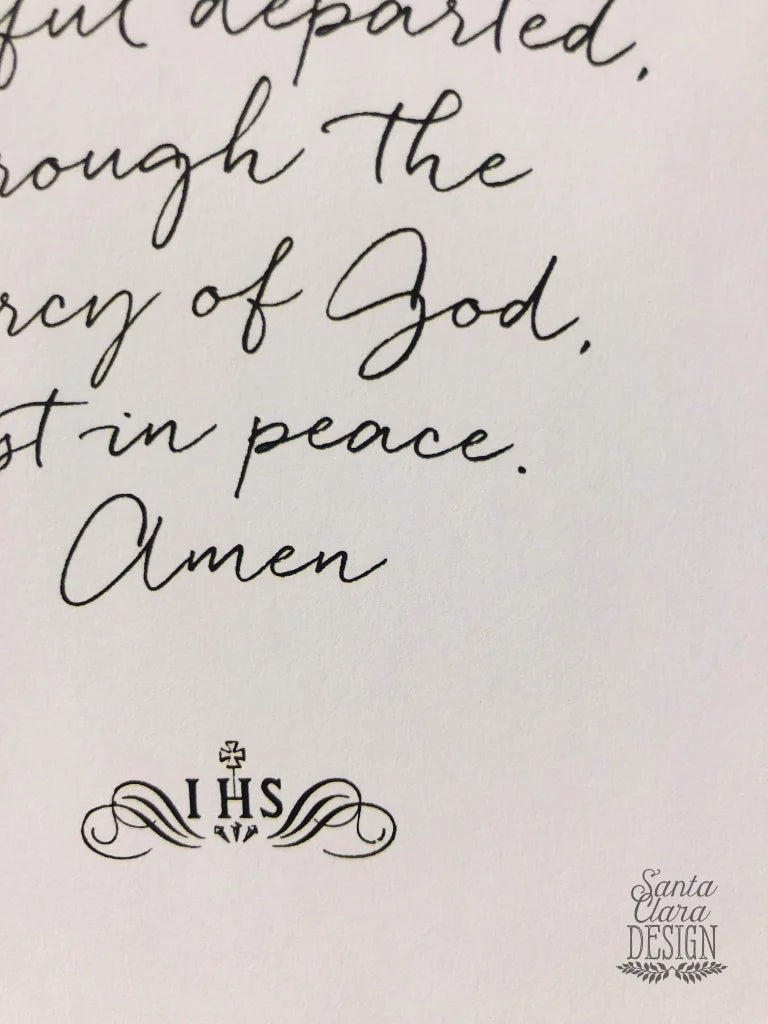 ful departed,
rough the
rcy of God,
st in peace.
Amen
IHS
Santa
Clara
DESIGN